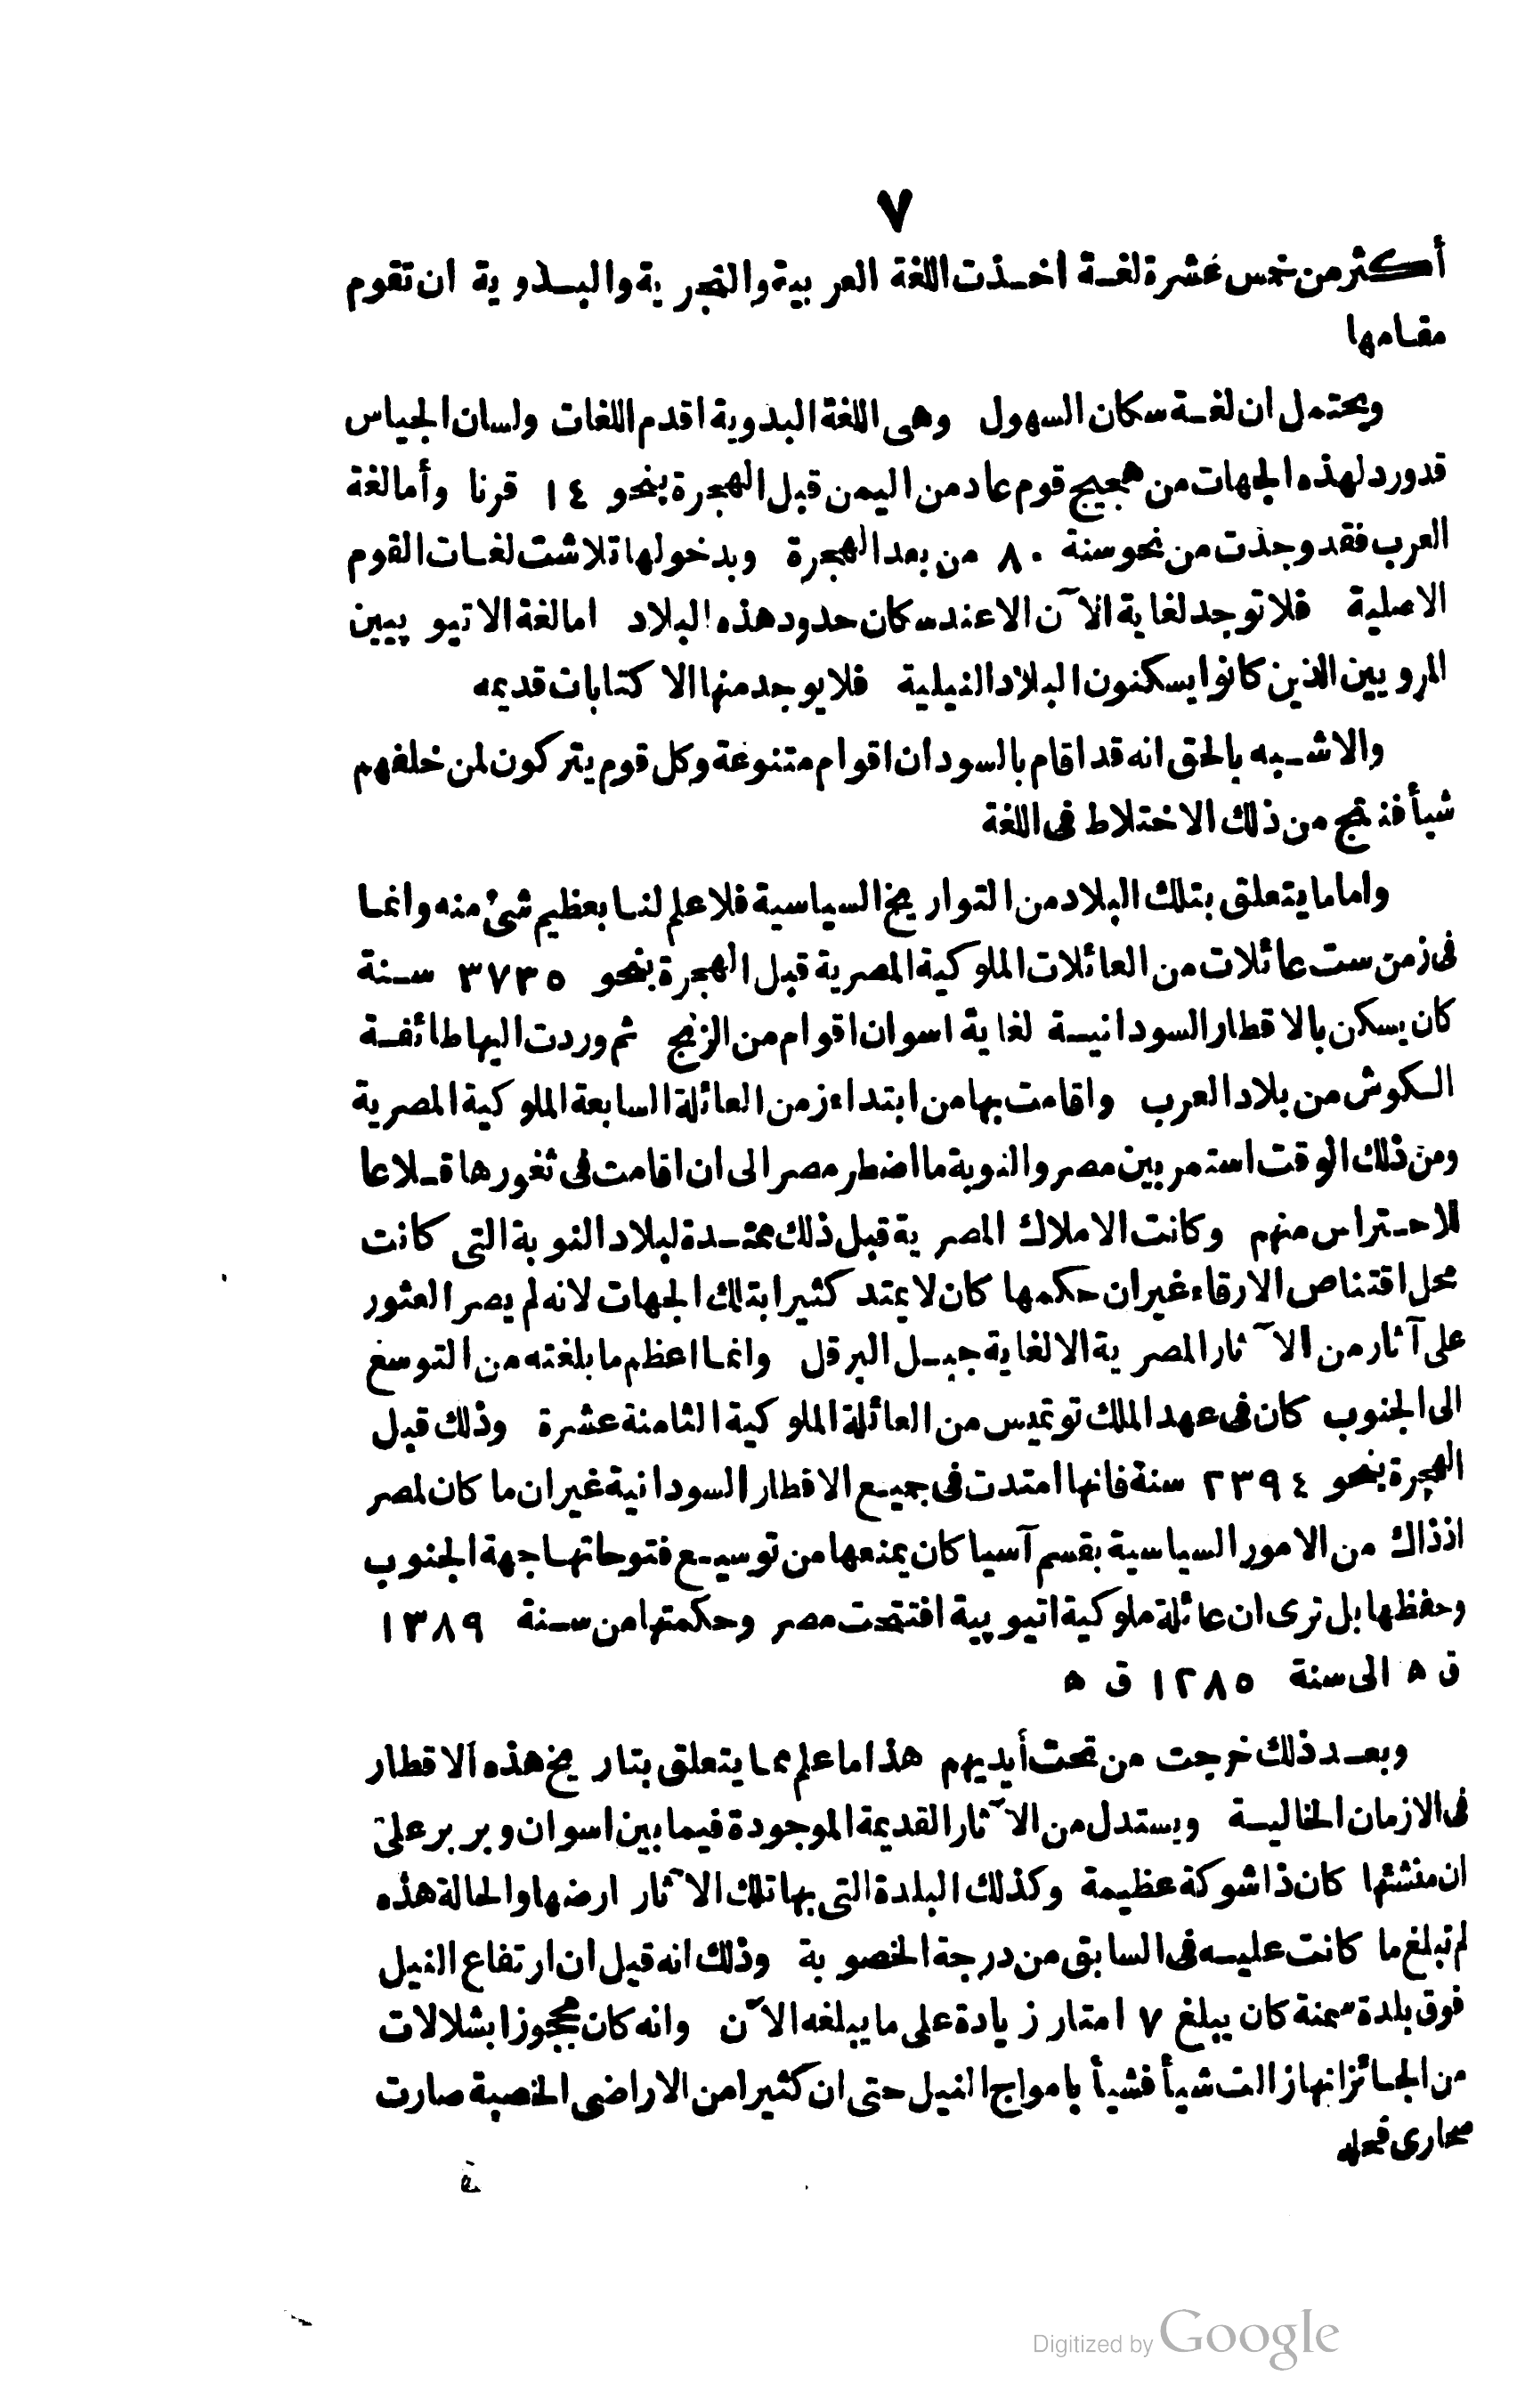 ٧
أكثر من خمس عشرة لغة اخذت اللغة العربية والفجرية والبدوية ان تقوم
مقامها
ويحتمل ان لغة سكان السهول وهى اللغة البدوية اقدم اللغات ولسان الجياس
قد ورد لهذه الجهات من هجيج قوم عاد من اليمن قبل الهجرة بنحو ١٤ قرنا وأما لغة
العرب فقد وجدت من نحو سنة ٨٠ من بعد الهجرة وبدخولها تلاشت لغات القوم
الاصلية فلا توجد لغاية الآن الا عند سكان حدود هذه البلاد اما لغة الاتيوپيين
المرويين الذين كانوا يسكنون البلاد النيلية فلا يوجد منها الا كتابات قديمه
والاشبه بالحق انه قد اقام بالسودان اقوام متنوعة وكل قوم يتركون لمن خلفهم
شيأ فنتج من ذلك الاختلاط فى اللغة
واما ما يتعلق بتلك البلاد من التواريخ السياسية فلا علم لنا بعظيم شئ منه وانما
فى زمن ست عائلات من العائلات الملوكية المصرية قبل الهجرة بنحو ٣٧٣٥ سنة
كان يسكن بالاقطار السودانية لغاية اسوان اقوام من الزنج ثم وردت اليها طائفة
الكوش من بلاد العرب واقامت بها من ابتداء زمن العائلة السابعة الملوكية المصرية
ومن ذلك الوقت استمر بين مصر والنوبة ما اضطر مصر الى ان اقامت فى ثغورها قلاعا
للاحتراس منهم وكانت الاملاك المصرية قبل ذلك ممتدة لبلاد النوبة التى كانت
محل اقتناص الارقاء غير ان حكمها كان لا يمتد كثيرا بتلك الجهات لانه لم يصر العثور
على آثار من الآثار المصرية الا لغاية جبل البرقل وانما اعظم ما بلغته من التوسع
الى الجنوب كان فى عهد الملك توتميس من العائلة الملوكية الثامنة عشرة وذلك قبل
الهجرة بنحو ٢٣٩٤ سنة فانها امتدت فى جميع الاقطار السودانية غير ان ما كان لمصر
اذ ذاك من الامور السياسية بقسم آسيا كان يمنعها من توسيع فتوحاتها جهة الجنوب
وحفظها بل ترى ان عائلة ملوكية اتيوپية افتتحت مصر وحكمتها من سنة ١٣٨٩
ق ه الى سنة ١٢٨٥ ق ه
وبعد ذلك خرجت من تحت أيديهم هذا ما علم مما يتعلق بتاريخ هذه الاقطار
فى الازمان الخالية ويستدل من الآثار القديمة الموجودة فيما بين اسوان وبربر على
ان منشئها كان ذا شوكة عظيمة وكذلك البلدة التى بها تلك الآثار ارضها والحالة هذه
لم تبلغ ما كانت عليه فى السابق من درجة الخصوبة وذلك انه قيل ان ارتفاع النيل
فوق بلدة سمنة كان يبلغ ٧ امتار زيادة على ما يبلغه الآن وانه كان محجوزا بشلالات
من الجائز انها زالت شيأ فشيأ بامواج النيل حتى ان كثيرا من الاراضى الخصبة صارت
صحارى قحله
Digitized by Google